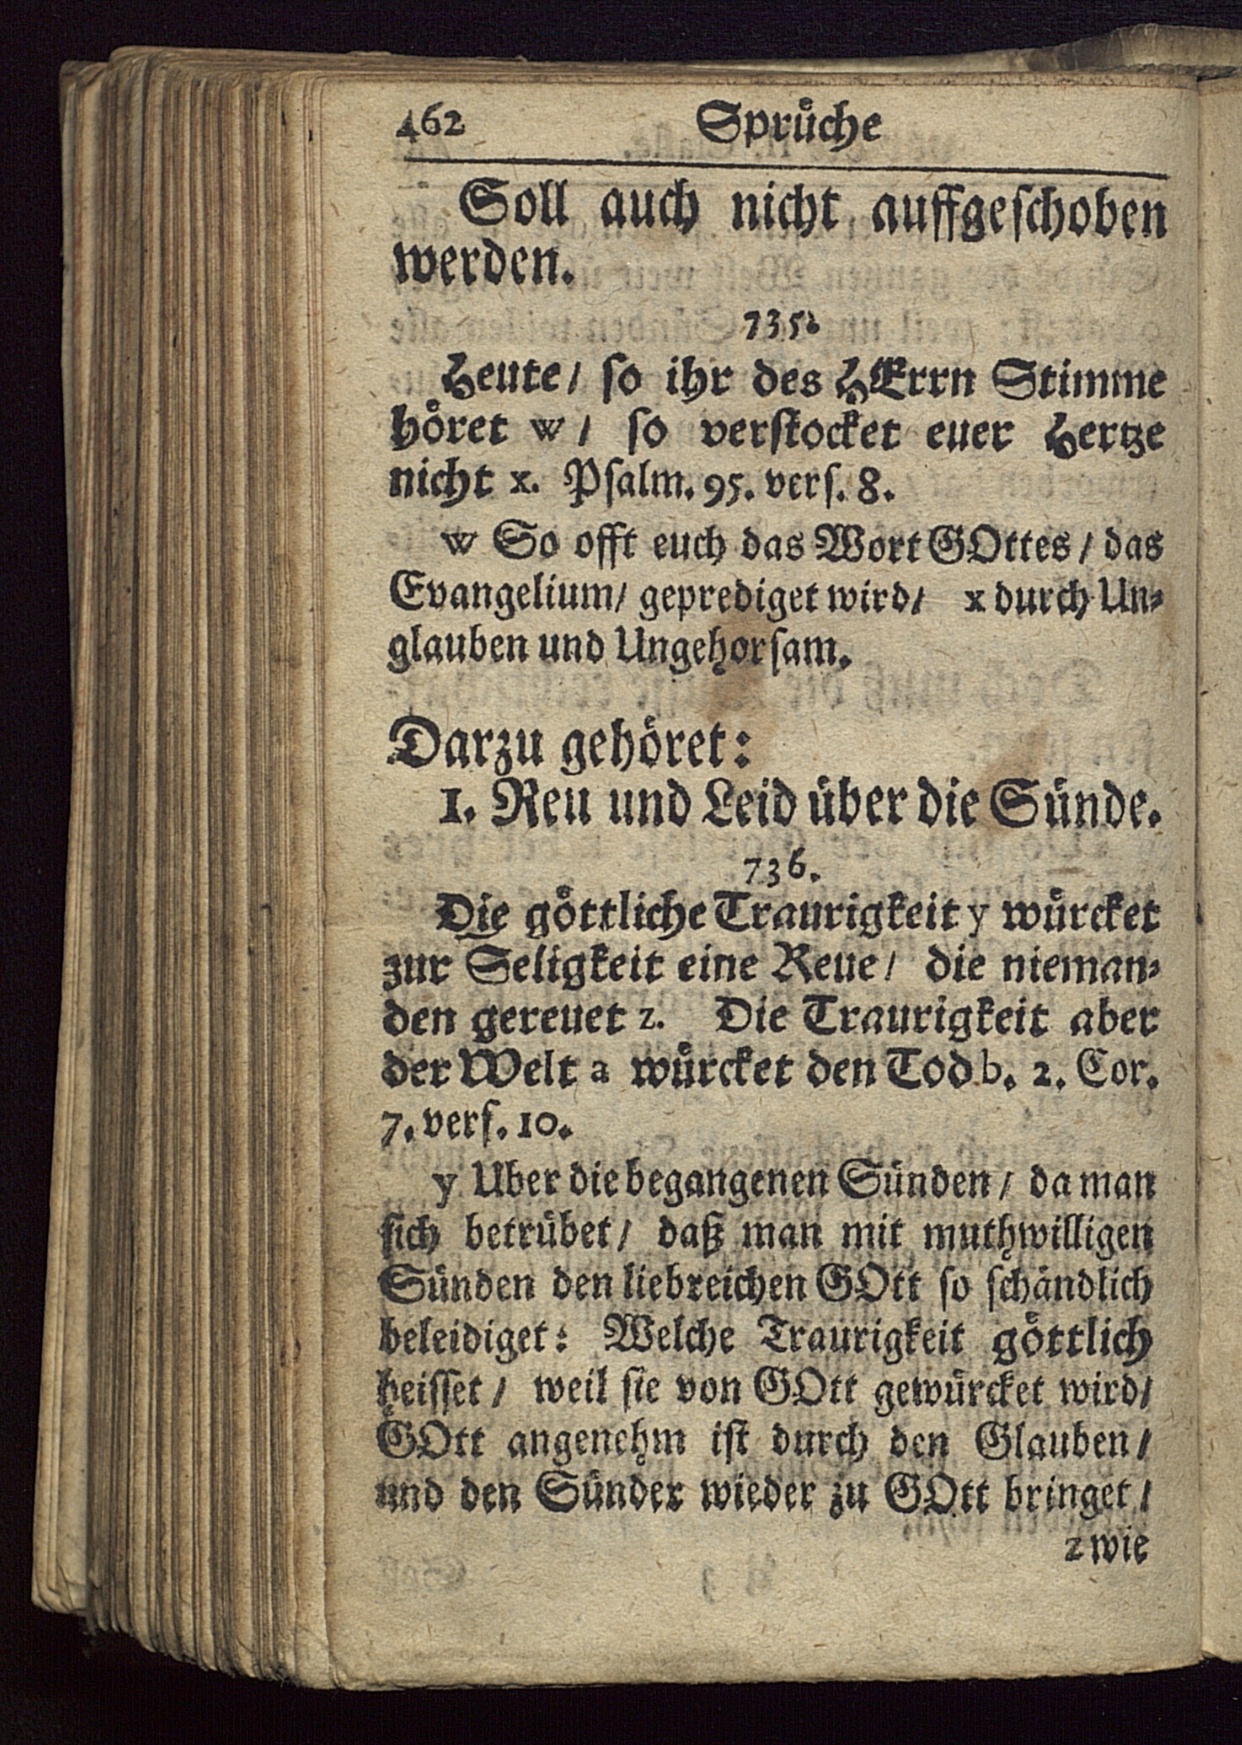 462 Sprüche
Soll auch nicht auffgeschoben
werden.
735.
Heute/ so ihr des HErrn Stimme
höret w/ so verstocket euer Hertze
nicht x. Psalm. 95. vers. 8.
w So offt euch das Wort GOttes/ das
Evangelium/ geprediget wird/ x durch Un-
glauben und Ungehorsam.
Darzu gehöret:
1. Reu und Leid über die Sünde.
736.
Die göttliche Traurigkeit y würcket
zur Seligkeit eine Reue/ die nieman-
den gereuet z. Die Traurigkeit aber
der Welt a würcket den Tod b. 2. Cor.
7. vers. 10.
y Uber die begangenen Sünden/ da man
sich betrübet/ daß man mit muthwilligen
Sünden den liebreichen GOtt so schändlich
beleidiget: Welche Traurigkeit göttlich
heisset/ weil sie von GOtt gewürcket wird/
GOtt angenehm ist durch den Glauben/
und den Sünder wieder zu GOtt bringet/
z wie